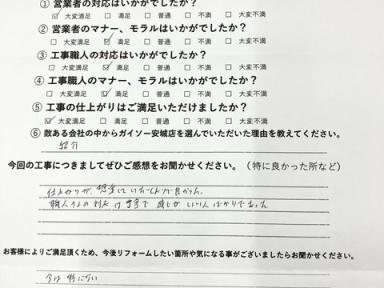 ① 営業者の対応はいかがでしたか?
☑ 大変満足 □ 満足 □ 普通 □ 不満 □ 大変不満
② 営業者のマナー、モラルはいかがでしたか?
□ 大変満足 ☑ 満足 □ 普通 □ 不満 □ 大変不満
③ 工事職人の対応はいかがでしたか?
□ 大変満足 ☑ 満足 □ 普通 □ 不満 □ 大変不満
④ 工事職人のマナー、モラルはいかがでしたか?
□ 大変満足 ☑ 満足 □ 普通 □ 不満 □ 大変不満
⑤ 工事の仕上がりはご満足いただけましたか?
☑ 大変満足 □ 満足 □ 普通 □ 不満 □ 大変不満
⑥ 数ある会社の中からガイソー安城店を選んでいただいた理由を教えてください。
紹介
今回の工事につきましてぜひご感想をお聞かせください。(特に良かった所など)
仕上がりが、想像していたより良かった。
職人さんの対応は で 感じがいい人ばかりでした
お客様によりご満足頂くため、今後リフォームしたい箇所や気になる事がございましたらお聞かせください。
今は特にない